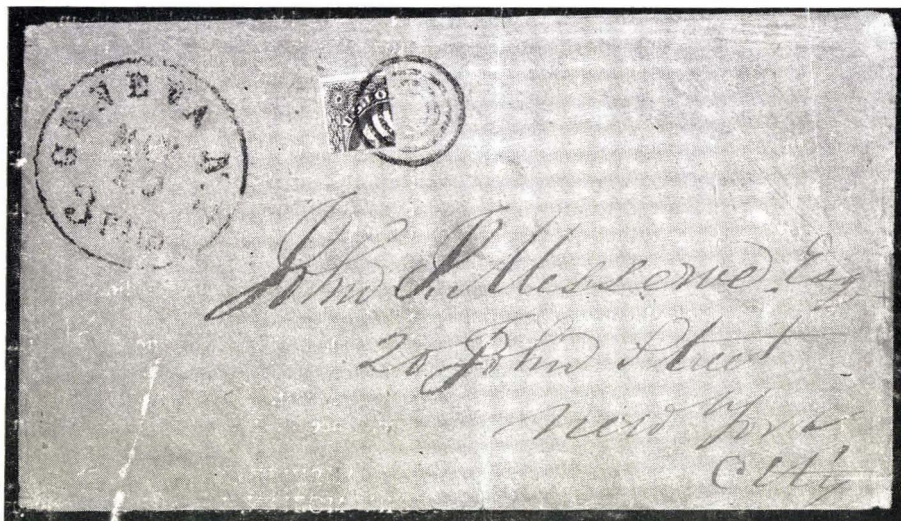 GENEVA N.
3 PAID
John S. Messerve Esq
20 John Street
New York
City